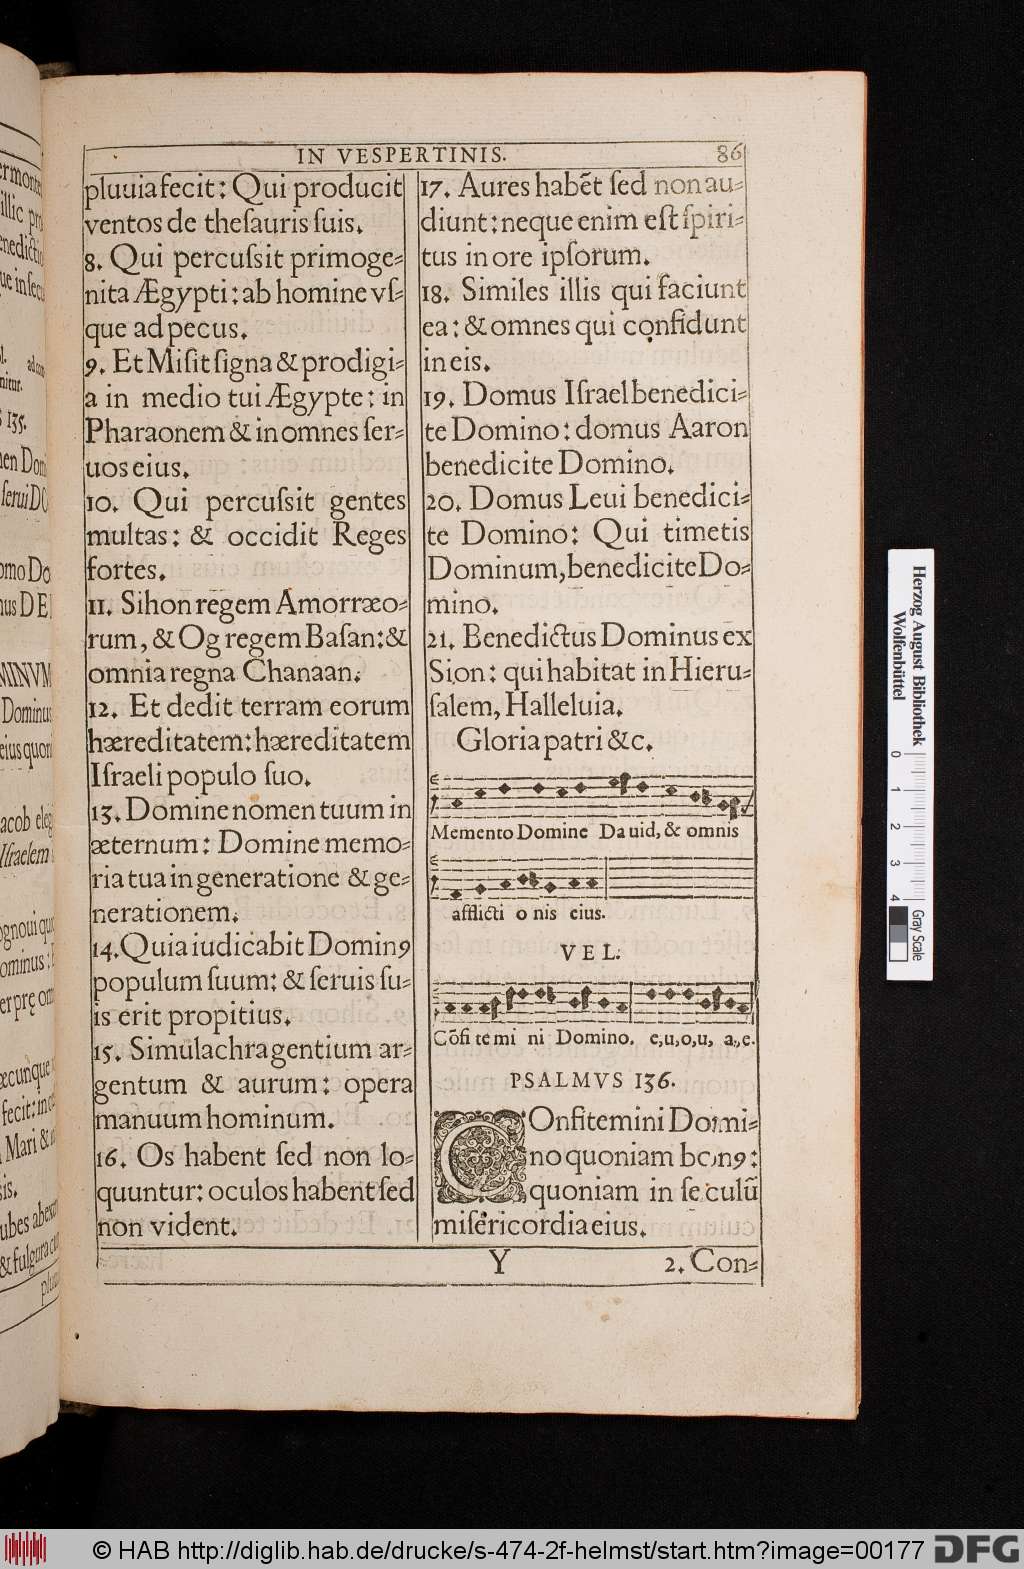 IN VESPERTINIS. 86
pluuia fecit: Qui producit
ventos de theſauris ſuis.
8. Qui percuſsit primoge=
nita Ægypti: ab homine vſ=
que ad pecus.
9. Et Miſit ſigna & prodigi=
a in medio tui Ægypte: in
Pharaonem & in omnes ſer=
uos eius.
10. Qui percuſsit gentes
multas: & occidit Reges
fortes.
11. Sihon regem Amorræo=
rum, & Og regem Baſan: &
omnia regna Chanaan.
12. Et dedit terram eorum
hæreditatem: hæreditatem
Iſraeli populo ſuo.
13. Domine nomen tuum in
æternum: Domine memo=
ria tua in generatione & ge=
nerationem.
14. Quia iudicabit Domin9
populum ſuum: & ſeruis ſu=
is erit propitius.
15. Simulachra gentium ar=
gentum & aurum: opera
manuum hominum.
16. Os habent ſed non lo=
quuntur: oculos habent ſed
non vident.
17. Aures habēt ſed non au=
diunt: neque enim eſt ſpiri=
tus in ore ipſorum.
18. Similes illis qui faciunt
ea: & omnes qui confidunt
in eis.
19. Domus Iſrael benedici=
te Domino: domus Aaron
benedicite Domino.
20. Domus Leui benedici=
te Domino: Qui timetis
Dominum, benedicite Do=
mino.
21. Benedictus Dominus ex
Sion: qui habitat in Hieru=
ſalem, Halleluia.
Gloria patri &c.
Memento Domine Dauid, & omnis
afflicti o nis eius.
VEL.
Cōfi te mi ni Domino. e,u,o,u, a,e.
PSALMVS 136.
COnfitemini Domi=
no quoniam bon9:
quoniam in ſeculū
miſericordia eius.
Y 2. Con=
ermonte
illic pr
enedictio
ue in ſecu
ad con
nitur.
135.
men Domi
ſerui DO
omo Do
nus DE
MINVM
Dominus
eius quon
acob eleg
Iſraelem
ognoui quo
ominus:
er prę om
æcunque
fecit: in c
Mari & in
sis.
ubes ab ext
& fulgura
plu
Herzog August Bibliothek
Wolfenbüttel
0 1 2 3 4
Gray Scale
© HAB http://diglib.hab.de/drucke/s-474-2f-helmst/start.htm?image=00177
DFG